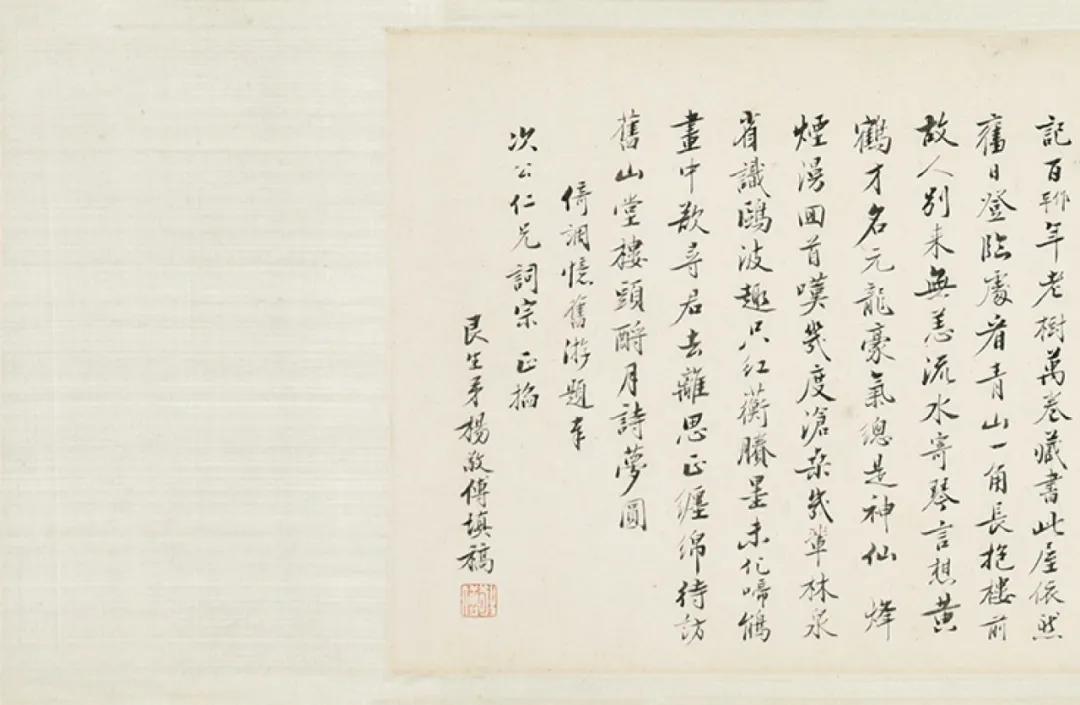 記百作平年老樹萬卷藏書此屋依然
舊日登臨處看青山一角長抱樓前
故人別來無恙流水寄琴言想黃
鶴才名元龍豪氣總是神仙 烽
煙漫回首嘆幾度滄桑幾輩林泉
省識鷗波趣只紅蘅賸墨未化啼鵑
畫中欲尋君去離思正纏綿待訪
舊山堂樓頭酹月詩夢圓
倚調憶舊游題奉
次公仁兄詞宗 正
艮生弟楊敬傅填稿